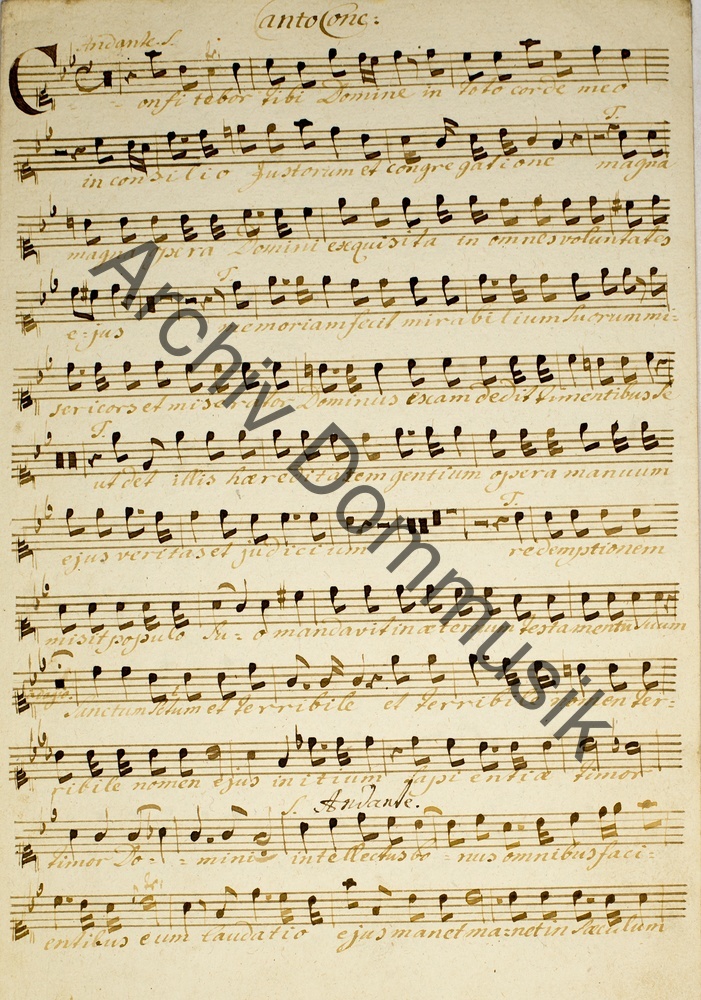 Canto Conc:
Andante. S.
Confitebor tibi Domine in toto corde meo
T.
in consilio Justorum et congregatione magna
magna opera Domini exquisita in omnes voluntates
T.
e-jus memoriam fecit mirabilium suorum mi:
sericors et miserator Dominus escam dedit timentibus se
T.
ut det illis hæreditatem gentium opera manuum
T.
ejus veritas et judicium redemptionem
misit populo su-o mandavit in æternum testamentum suum
Adagio.
Sanctum et terribile et terribile nomen ter-
ribile nomen ejus initium sapientiæ timor
S. Andante.
timor Do-mini intellectus bo-nus omnibus faci-
entibus eum laudatio ejus manet ma-net in sæculum
Archiv Dommusik